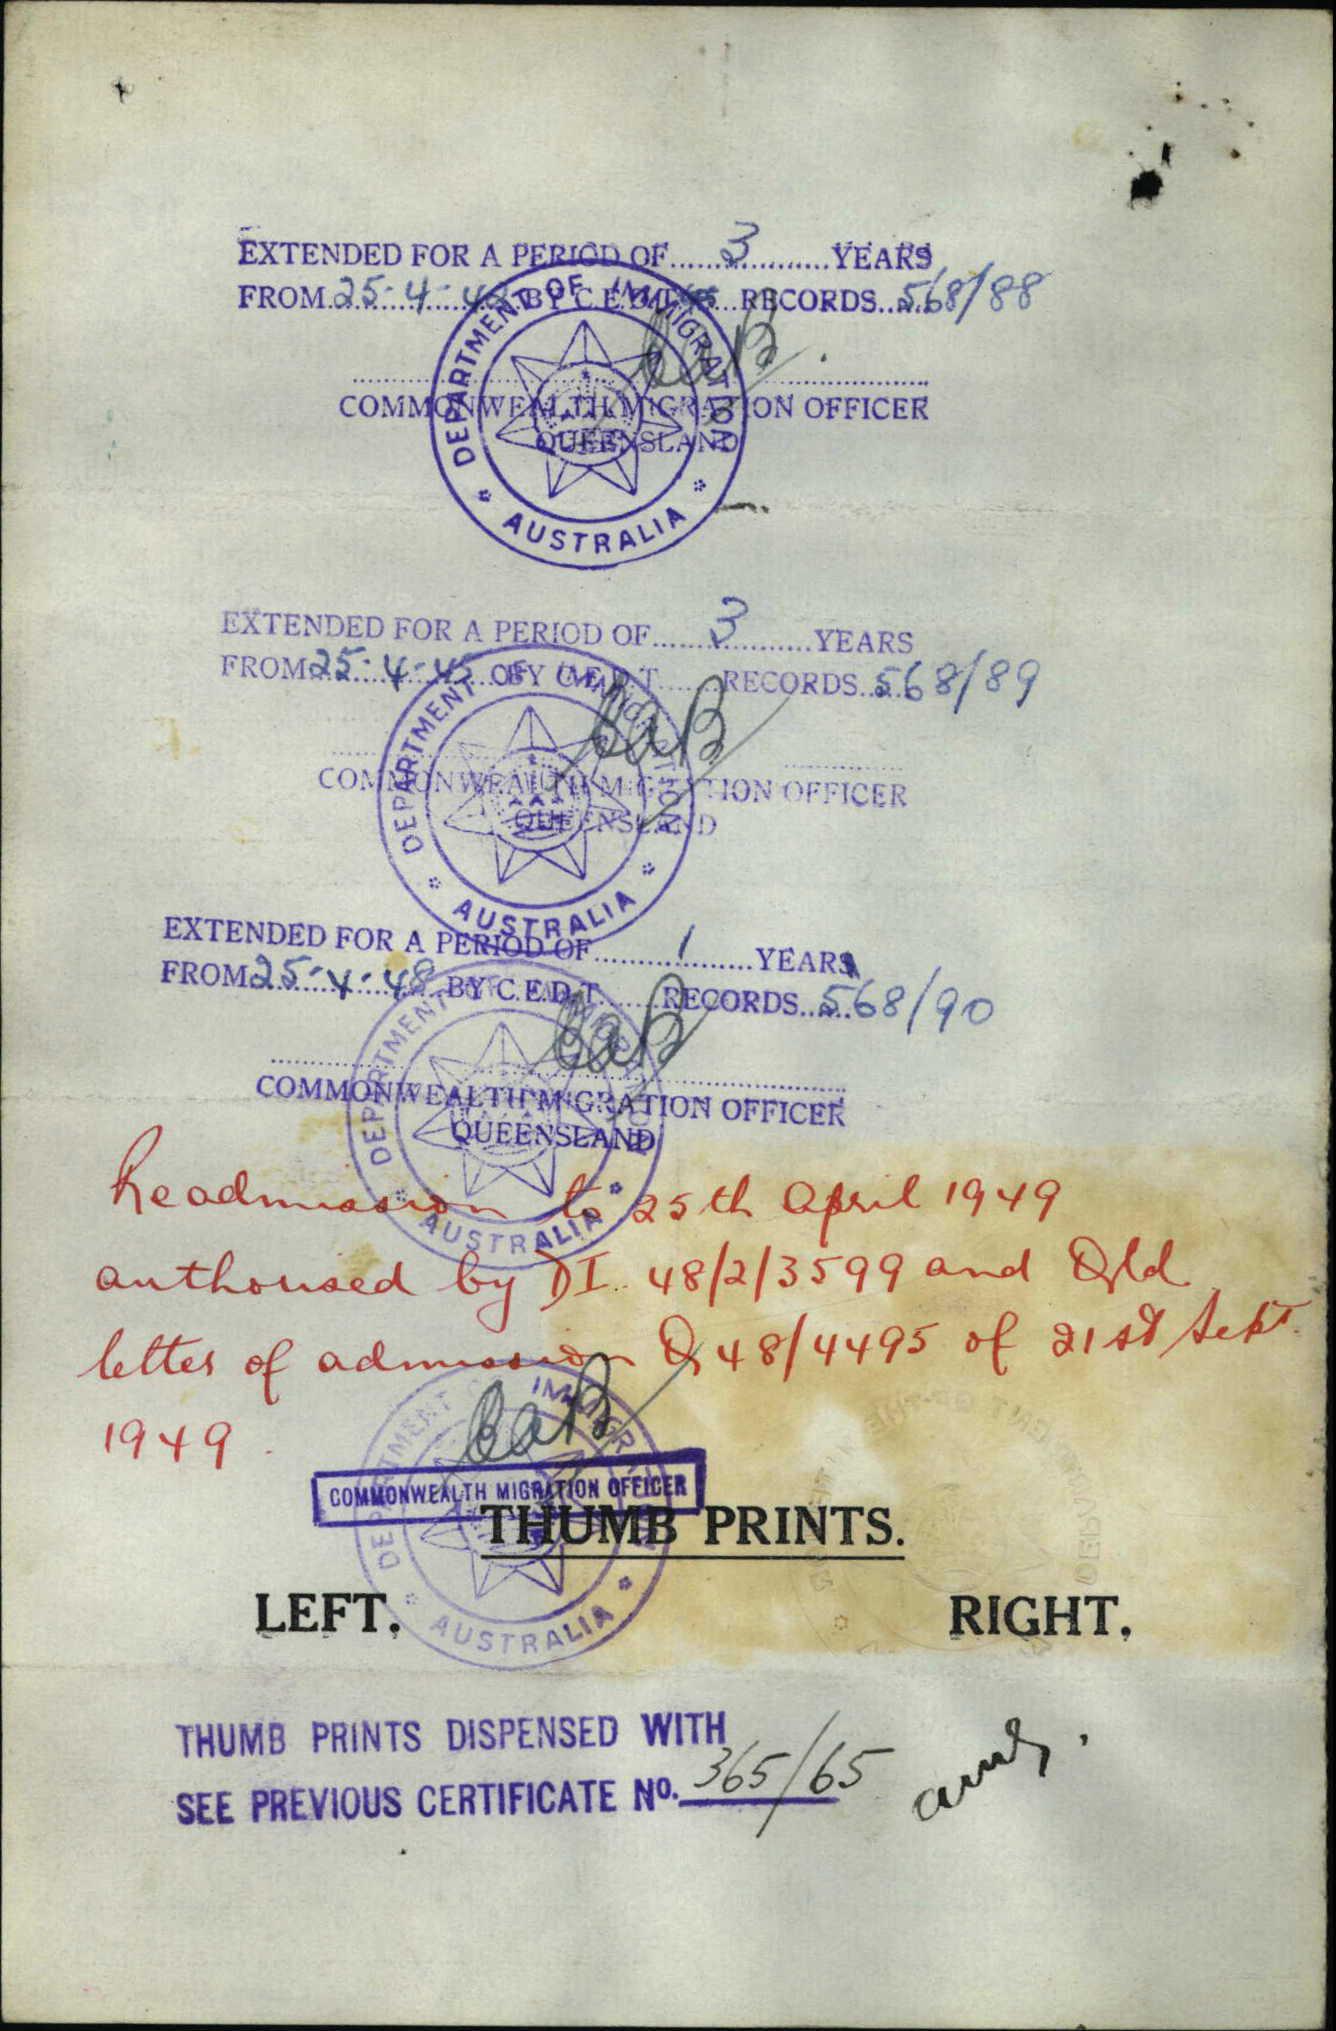 EXTENDED FOR A PERIOD OF 3 YEARS
FROM 25-4-42 BY C.E.D.T. RECORDS 568/88
COMMONWEALTH MIGRATION OFFICER
QUEENSLAND
DEPARTMENT OF IMMIGRATION
AUSTRALIA
EXTENDED FOR A PERIOD OF 3 YEARS
FROM 25-4-45 BY C.E.D.T. RECORDS 568/89
COMMONWEALTH MIGRATION OFFICER
QUEENSLAND
DEPARTMENT OF IMMIGRATION
AUSTRALIA
EXTENDED FOR A PERIOD OF 1 YEAR
FROM 25-4-48 BY C.E.D.T. RECORDS 568/90
COMMONWEALTH MIGRATION OFFICER
QUEENSLAND
DEPARTMENT OF IMMIGRATION
AUSTRALIA
Readmission to 25th April 1949
authorised by DI. 48/2/3599 and Qld
letter of admission Q 48/4495 of 21st Sept.
1949.
DEPARTMENT OF IMMIGRATION
COMMONWEALTH MIGRATION OFFICER
THUMB PRINTS.
LEFT. RIGHT.
AUSTRALIA
THUMB PRINTS DISPENSED WITH
SEE PREVIOUS CERTIFICATE No. 365/65